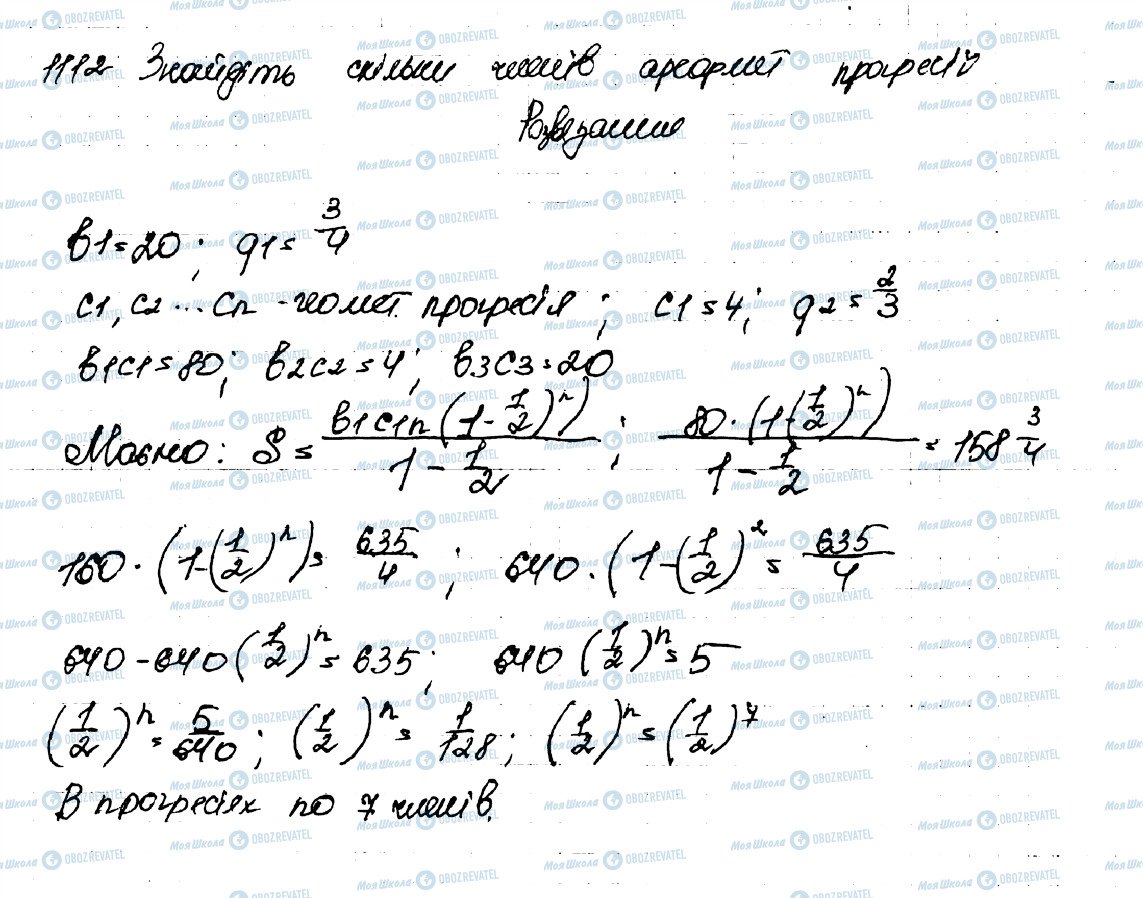 1112 Знайдіть скільки членів арормет прогресій
Розвязання
b1=20; q1= 3/4
c1, c2 ... cn - геомет. прогресія; c1=4; q2= 2/3
b1c1=80; b2c2=4; b3c3=20
Маємо: S= b1c1n(1-1/2)^n) / 1-1/2; 80·(1-(1/2)^n) / 1-1/2 = 158 3/4
160·(1-(1/2)^n)= 635/4; 640·(1-(1/2)^2= 635/4
640-640(1/2)^n= 635; 640(1/2)^n=5
(1/2)^n= 5/640; (1/2)^n= 1/128; (1/2)^n=(1/2)^7
В прогресіях по 7 членів.